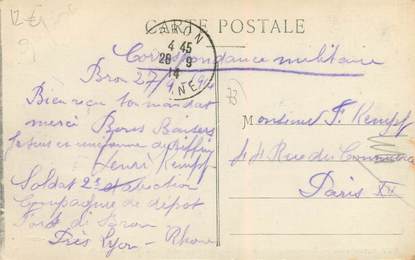 12 €
CARTE POSTALE
4 45
28 9
14
Correspondance militaire
Bron 27/9/14
Bien reçu ton mandat
merci Bons Baisers
Je suis en uniforme de
Henri Kempf
Soldat 2e
Compagnie de dépot
Fort de Bron
Près Lyon - Rhone
33
Monsieur F. Kempf
44 Rue des
Paris XX